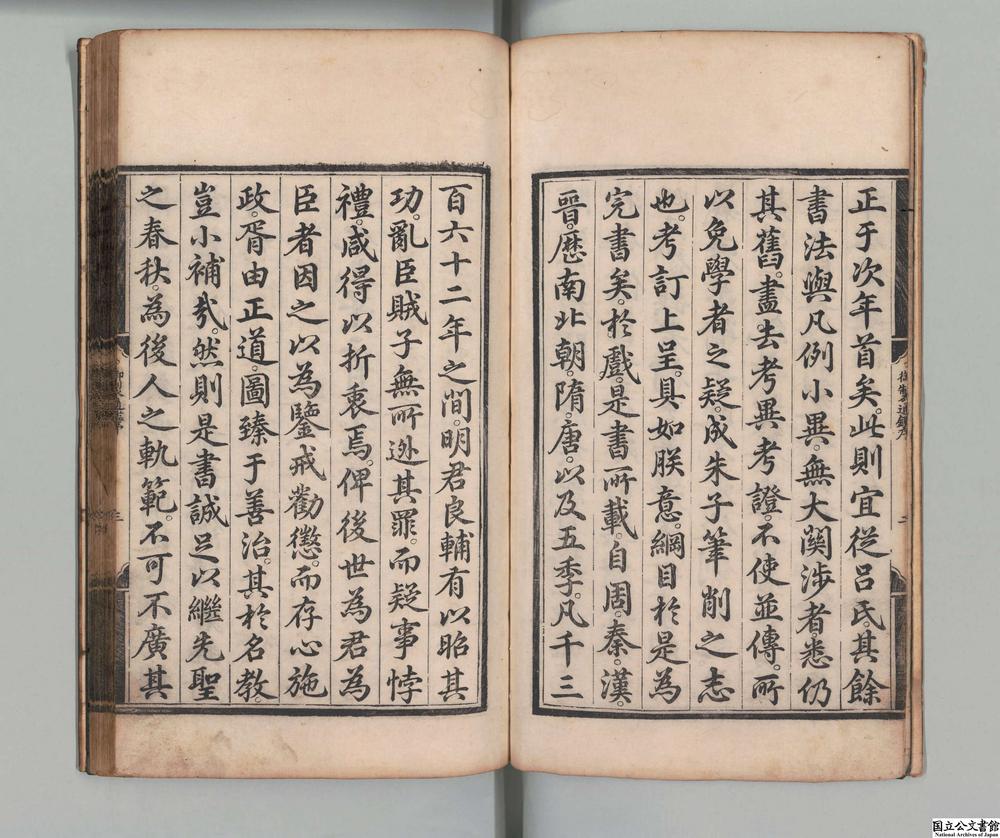 正于次年首矣。此則宜從呂氏。其餘
書法與凡例小異。無大関涉者。悉仍
其舊。盡去考異考證。不使並傳。所
以免學者之疑。成朱子筆削之志
也。考訂上呈。具如朕意。綱目於是為
完書矣。於戲。是書所載。自周。秦。漢。
晉。歷南北朝。隋。唐。以及五季。凡千三
百六十二年之間。明君良輔有以昭其
功。亂臣賊子無所逃其罪。而疑事悖
禮。咸得以折衷焉。俾後世為君為
臣者因之以為鑒戒勸懲。而存心施
政。胥由正道。圖臻于善治。其於名教。
豈小補哉。然則是書誠足以繼先聖
之春秋。為後人之軌範。不可不廣其
二
三
国立公文書館
National Archives of Japan